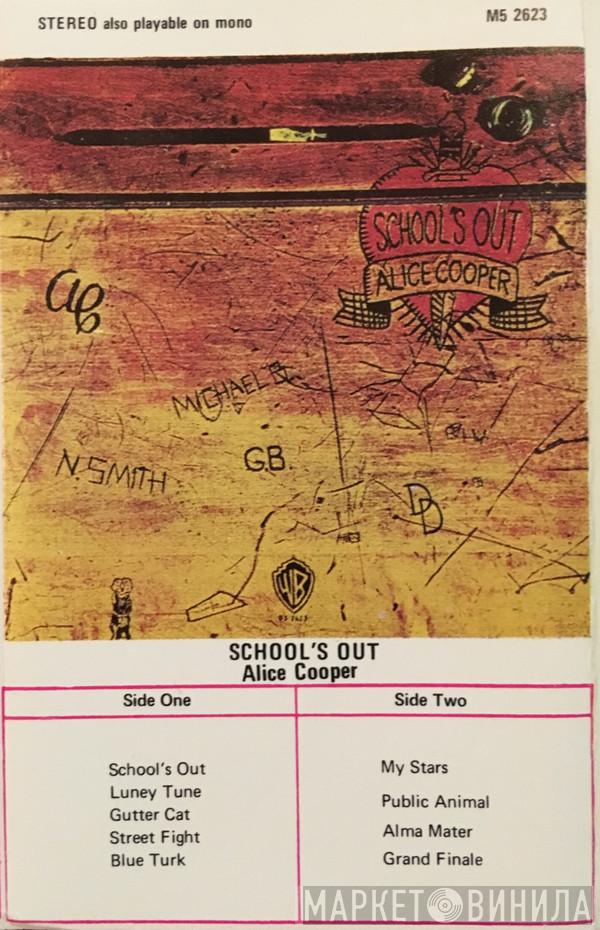 STEREO also playable on mono
M5 2623
SCHOOL'S OUT
ALICE COOPER
AC
MICHAEL B
N. SMITH
G.B.
DD
WB
SCHOOL'S OUT
Alice Cooper
Side One
Side Two
School's Out
Luney Tune
Gutter Cat
Street Fight
Blue Turk
My Stars
Public Animal
Alma Mater
Grand Finale
МАРКЕТ ВИНИЛА